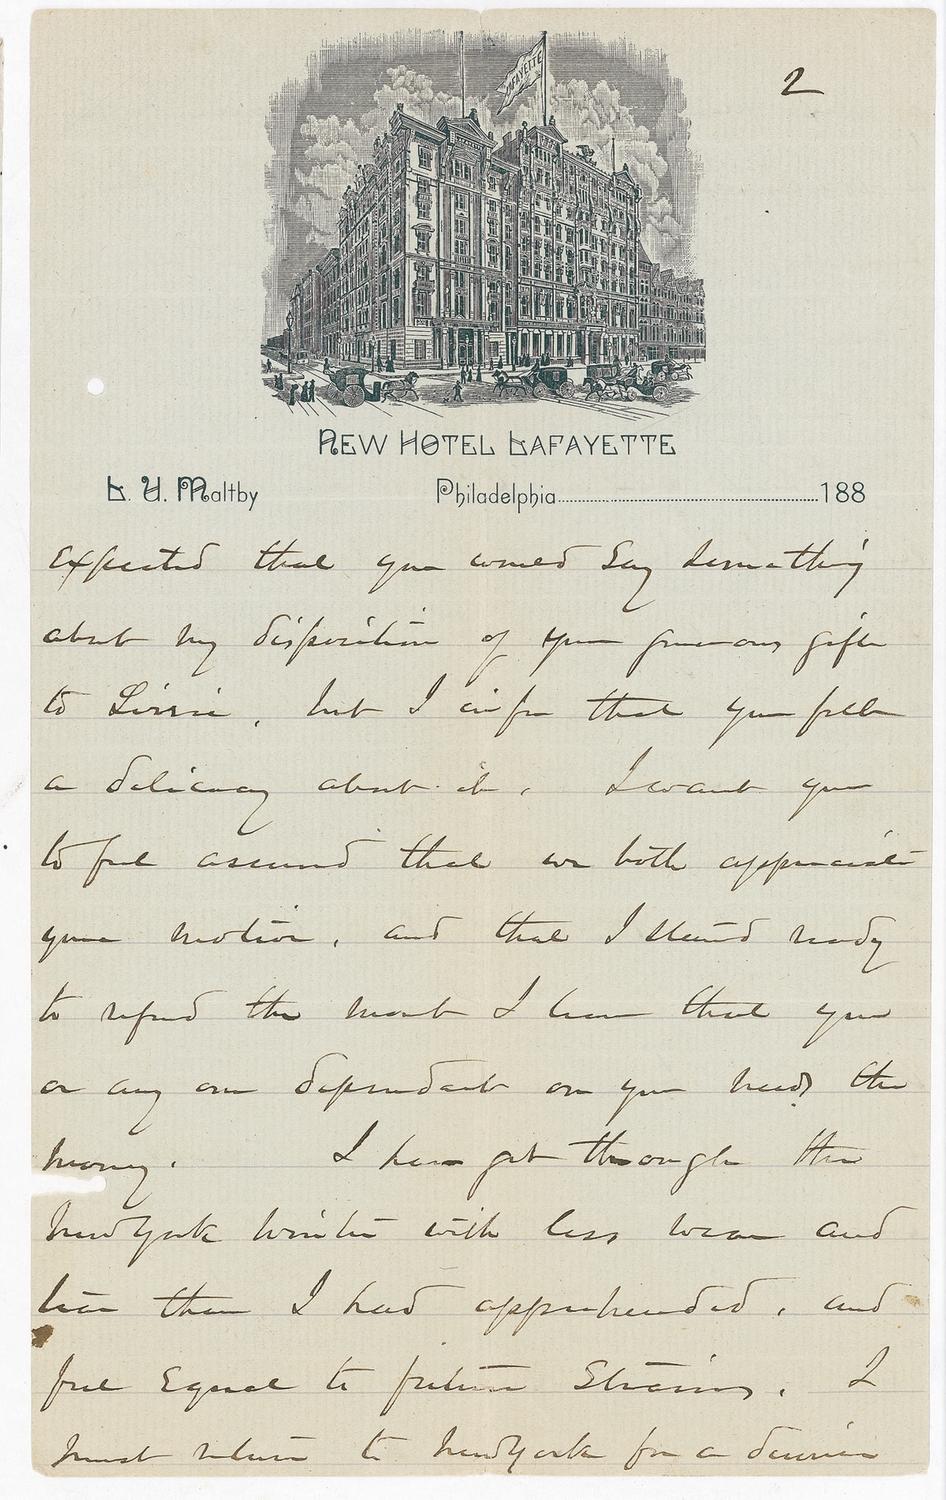 2
LAFAYETTE
NEW HOTEL LAFAYETTE
L. U. Maltby
Philadelphia 188
expected that you would say something
about my disposition of your generous gift
to Lizzie, but I infer that you felt
a delicacy about it. I want you
to feel assured that we both appreciate
your motive, and that I stand ready
to refund the moment I learn that you
or any one dependent on you needs the
money. I have got through the
New York winter with less wear and
tear than I had apprehended, and
feel Equal to future Strains. I
must return to New York for a dinner